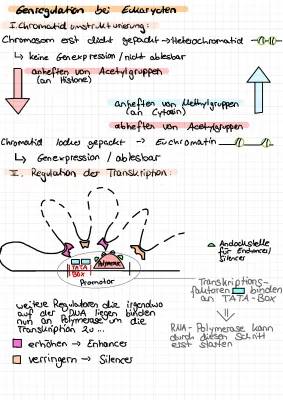 Genregulation bei Eukaryoten
I. Chromatid umstrukturierung:
Chromosom erst dicht gepackt → Heterochromatid
↳ keine Genexpression / nicht ablesbar
anheften von Acetylgruppen
(an Histone)
anheften von Methylgruppen
(an Cytosin)
abheften von Acetylgruppen
Chromatid locker gepackt → Euchromatin
↳ Genexpression / ablesbar
II. Regulation der Transkription:
TATA
Box
Polymerase
Promotor
Andockstelle
für Enhancer/
Silencer
Transkriptions-
faktoren binden
an TATA-Box
RNA-Polymerase kann
durch diesen Schritt
erst starten
weitere Regulatoren die irgendwo
auf der DNA liegen binden
nun an Polymerase um die
Transkription zu...
erhöhen → Enhancer
verringern → Silencer